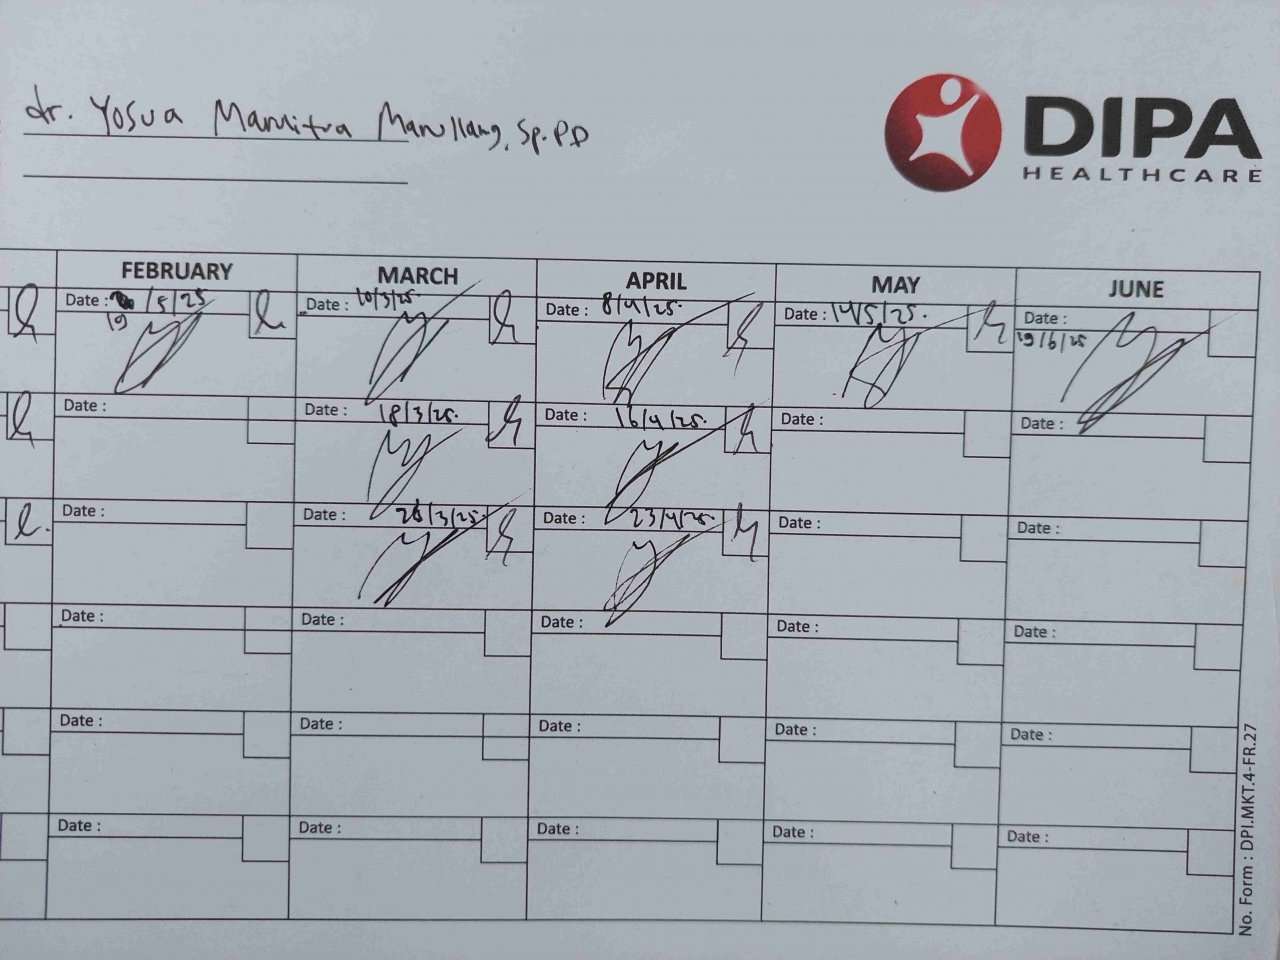 dr. Yosua Marnitra Manullang, Sp.PD
DIPA
HEALTHCARE
FEBRUARY MARCH APRIL MAY JUNE
Date : /5/25 Date : 10/3/25. Date : 8/4/25. Date : 14/5/25. Date :
19 19/6/25
Date : Date : 18/3/25. Date : 16/4/25. Date : Date :
Date : Date : 26/3/25. Date : 23/4/25. Date : Date :
Date : Date : Date : Date : Date :
Date : Date : Date : Date : Date :
Date : Date : Date : Date : Date :
No. Form : DPI.MKT.4-FR.27